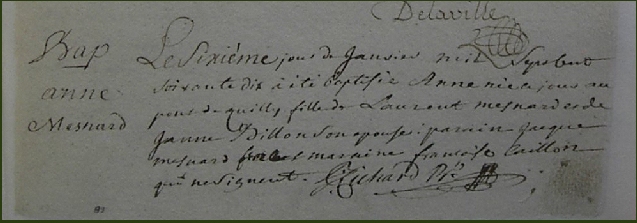 Delaville
Bap
anne
Mesnard
Le sixième jour de Janvier mil sept cent
soixante dix à été baptisée Anne née ce jour au
de quilly fille de Laurent mesnard et de
Janne Dillon son epouse: parain Jacque
mesnard maraine françoise Caillon
qui ne signent. Richard